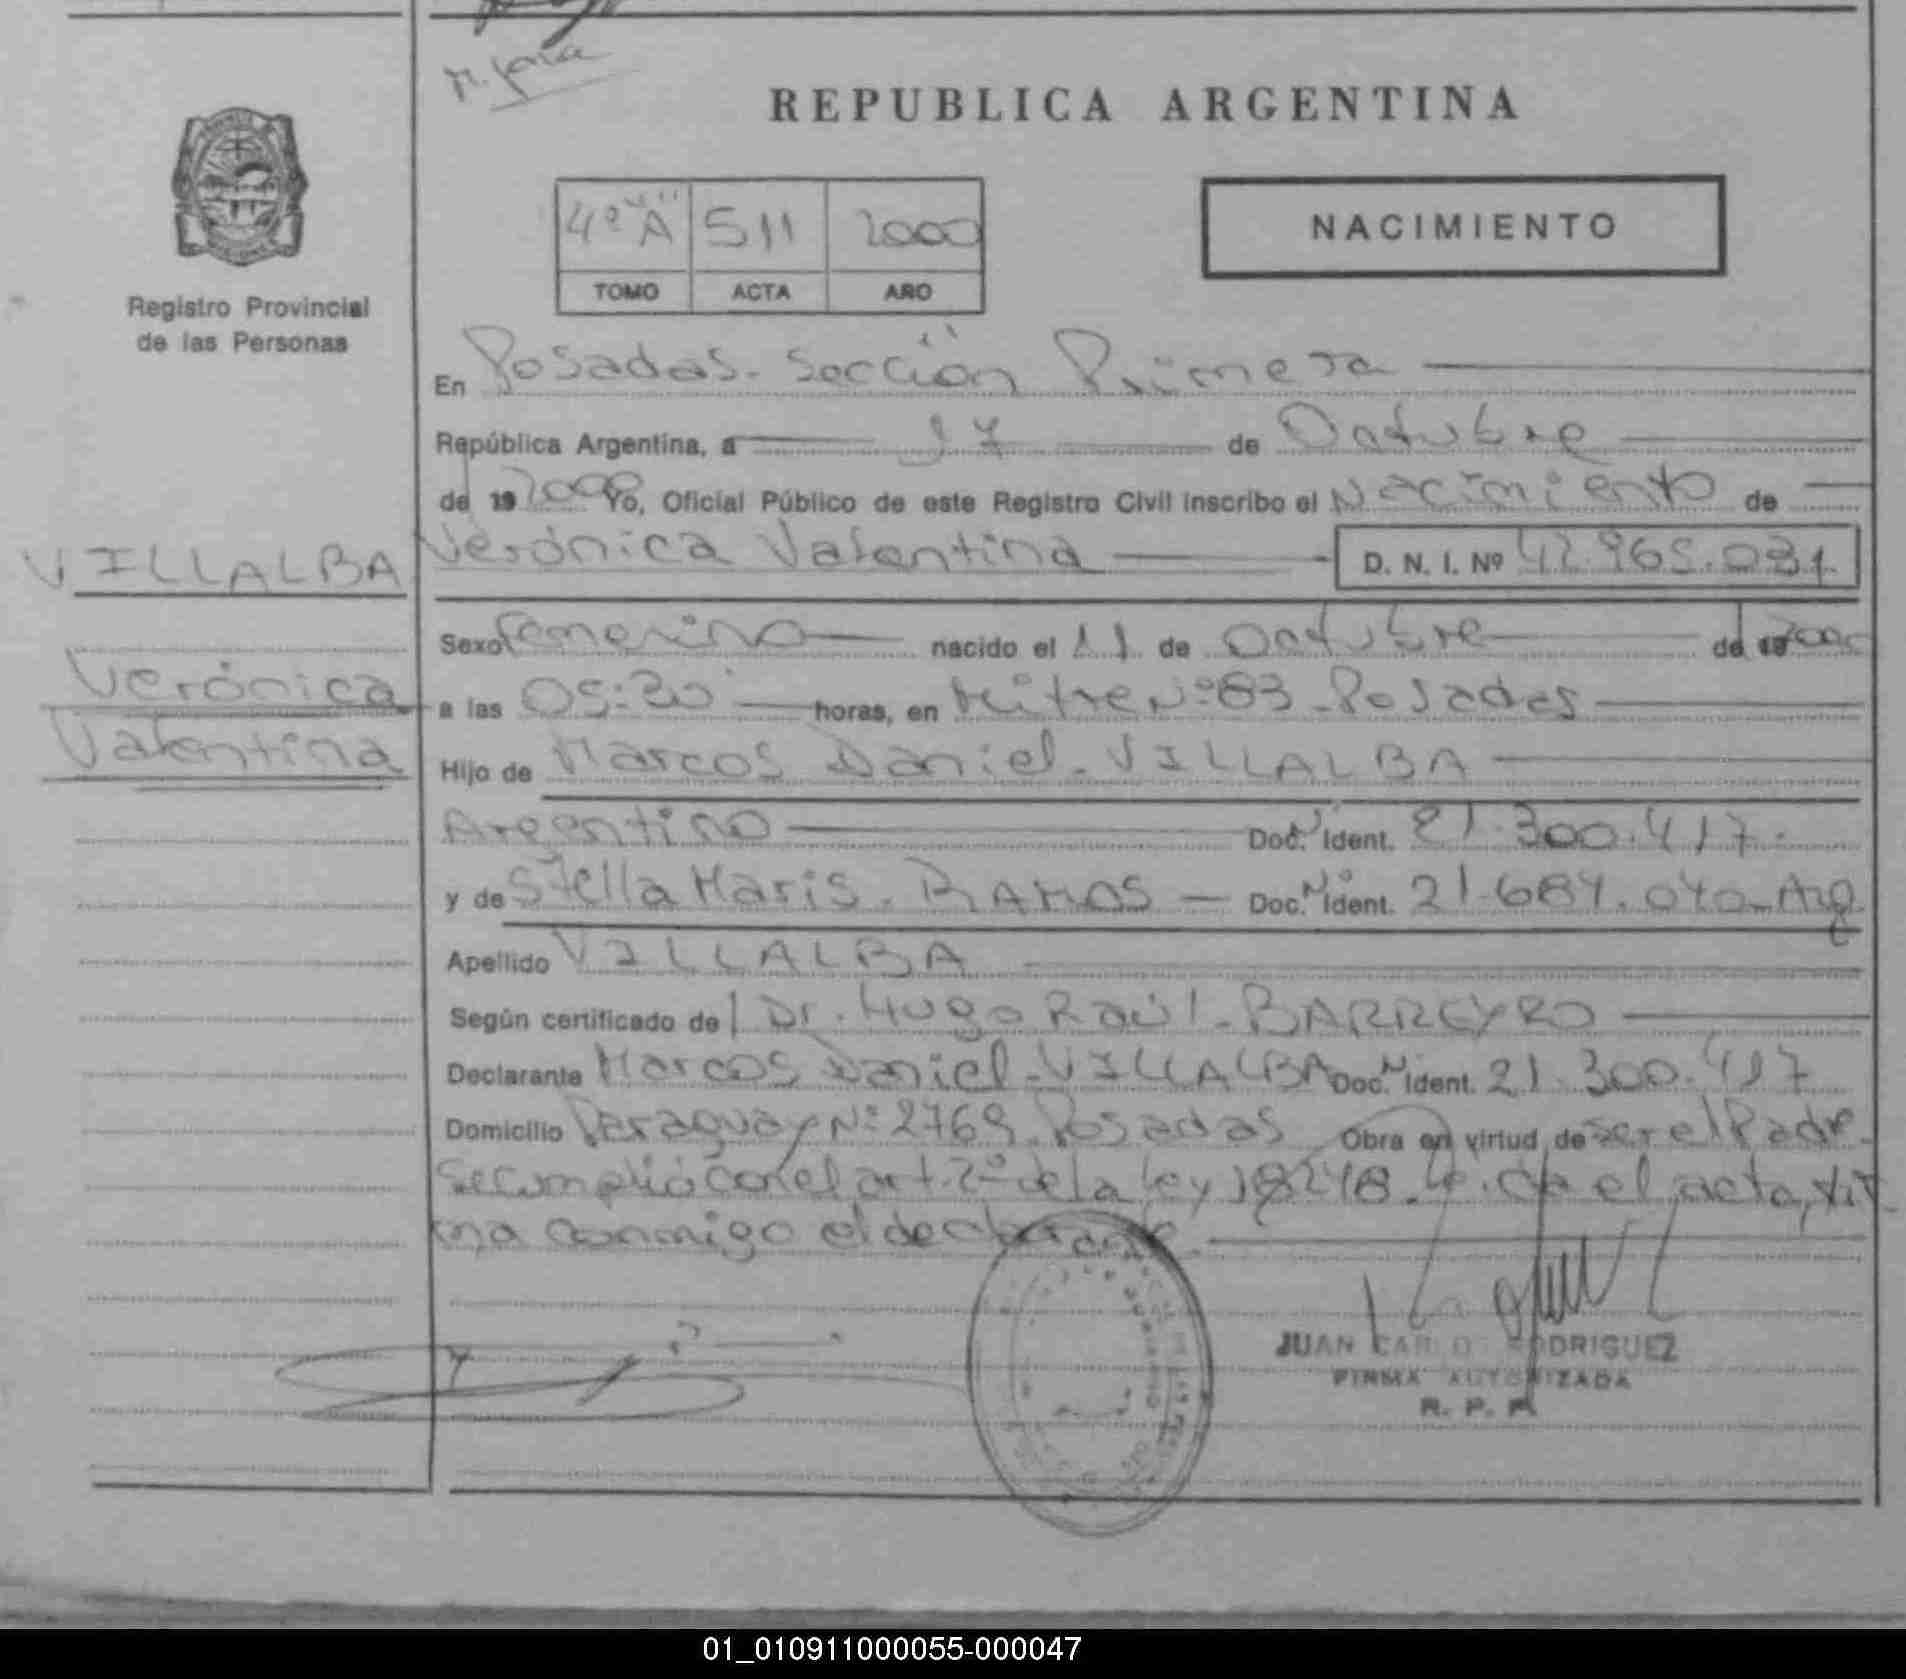 REPUBLICA ARGENTINA
4º "A" 511 2000
TOMO ACTA AÑO
NACIMIENTO
Registro Provincial
de las Personas
En Posadas. Sección Primera
República Argentina, a 17 de Octubre
de 19 2000 Yo, Oficial Público de este Registro Civil inscribo el Nacimiento de
VILLALBA
Verónica Valentina D. N. I. Nº 42.965.031.
Sexo femenino nacido el 11 de Octubre de 19 2000
Verónica
Valentina
a las 05:20 horas, en Mitre Nº 83 - Posadas
Hijo de Marcos Daniel - VILLALBA
Argentino Doc. Nº Ident. 21.300.417.
y de Stella Maris. RAMOS Doc. Nº Ident. 21.684.040 - Arg
Apellido VILLALBA
Según certificado de Dr. Hugo Raúl - BARREYRO
Declarante Marcos Daniel - VILLALBA Doc. Nº Ident. 21.300.417
Domicilio Paraguay Nº 2769. Posadas Obra en virtud de ser el Padre.
Se cumplió con el art. 2º de la ley 18248. el acta, fir-
ma conmigo el declarante.
JUAN CARLOS RODRIGUEZ
FIRMA AUTORIZADA
R. P. P.
01_010911000055-000047